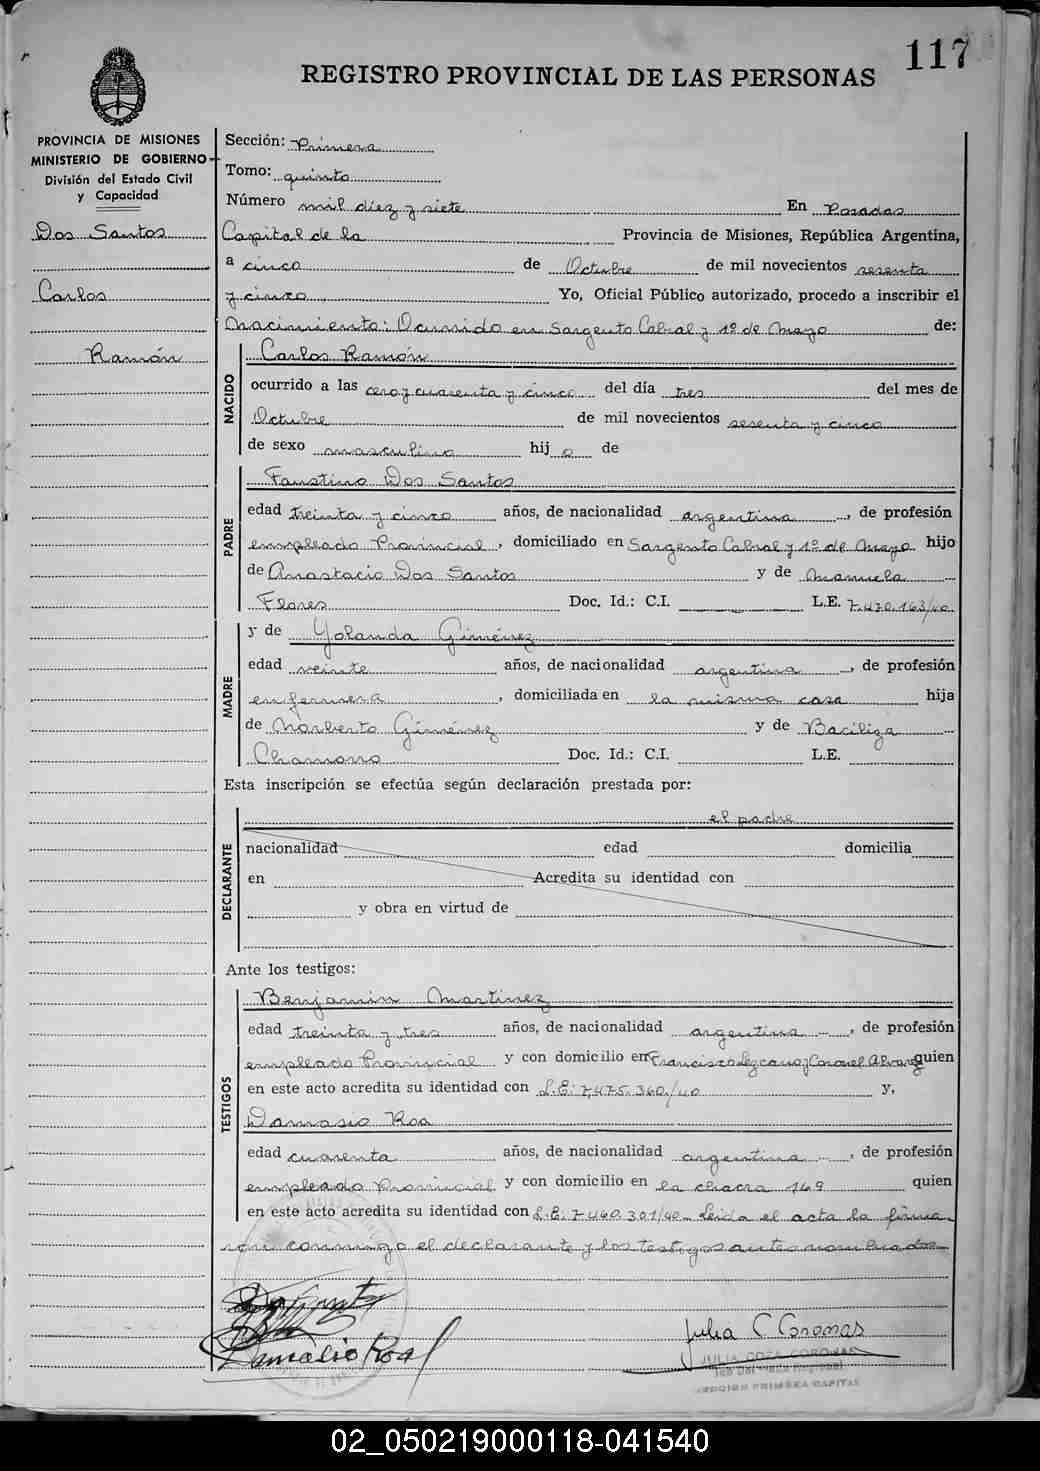 117
REGISTRO PROVINCIAL DE LAS PERSONAS
PROVINCIA DE MISIONES
MINISTERIO DE GOBIERNO
División del Estado Civil
y Capacidad
Dos Santos
Carlos
Ramón
Sección: Primera
Tomo: quinto
Número mil diez y siete En Posadas
Capital de la Provincia de Misiones, República Argentina,
a cinco de Octubre de mil novecientos sesenta
y cinco Yo, Oficial Público autorizado, procedo a inscribir el
Nacimiento: Ocurrido en Sargento Cabral y 1º de Mayo de:
NACIDO
Carlos Ramón
ocurrido a las cero y cuarenta y cinco del día tres del mes de
Octubre de mil novecientos sesenta y cinco
de sexo masculino hijo de
PADRE
Faustino Dos Santos
edad treinta y cinco años, de nacionalidad argentina, de profesión
empleado Provincial, domiciliado en Sargento Cabral y 1º de Mayo hijo
de Anastacio Dos Santos y de Manuela
Flores Doc. Id.: C.I. L.E. 7.470.163/40
MADRE
y de Yolanda Giménez
edad veinte años, de nacionalidad argentina, de profesión
enfermera, domiciliada en la misma casa hija
de Norberto Giménez y de Baciliza
Chamorro Doc. Id.: C.I. L.E.
Esta inscripción se efectúa según declaración prestada por:
el padre
DECLARANTE
nacionalidad edad domicilia
en Acredita su identidad con
y obra en virtud de
Ante los testigos:
TESTIGOS
Benjamin Martinez
edad treinta y tres años, de nacionalidad argentina, de profesión
empleado Provincial y con domicilio en Francisco Lezcano y Coronel Alvarez quien
en este acto acredita su identidad con L.E: 7.475.360/40 y,
Damasio Roa
edad cuarenta años, de nacionalidad argentina, de profesión
empleado Provincial y con domicilio en la chacra 149 quien
en este acto acredita su identidad con L.E: 7.460.301/40. Leida el acta la firma-
ron conmigo el declarante y los testigos antes nombrados
Damasio Roa
Julia C Coronas
02_050219000118-041540